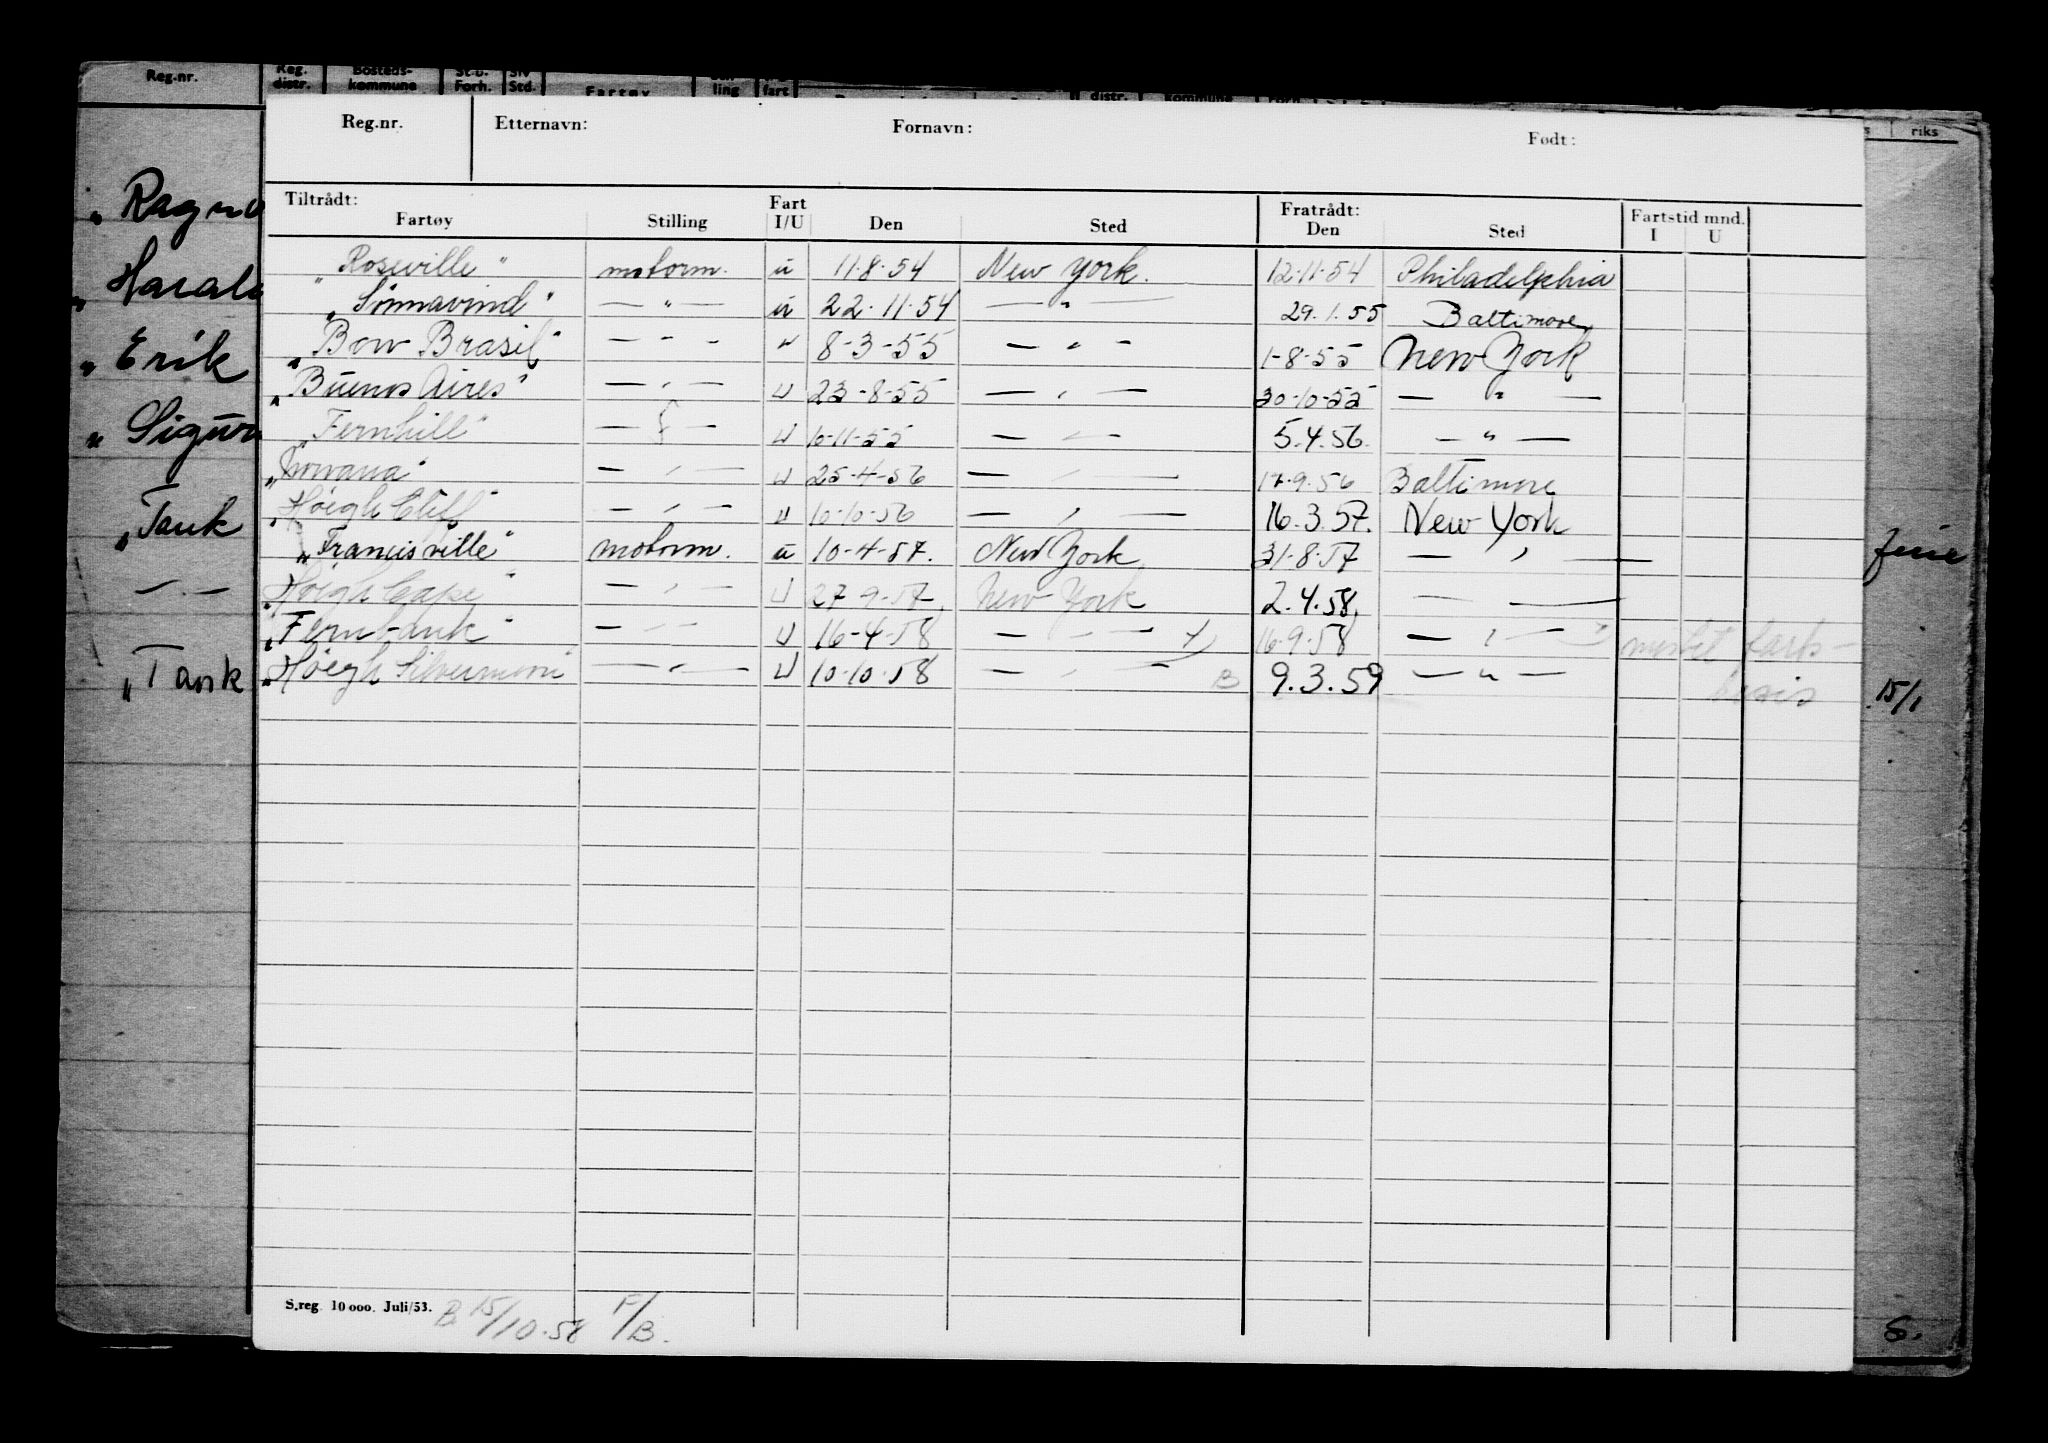 Reg.nr. Reg. distr. Bosteds-kommune St.b. Forh. Siv Std. Fartøy ling fart distr. kommune riks
Reg.nr. Etternavn: Fornavn: Født:
Tiltrådt: Fart Fratrådt: Fartstid mnd.
Fartøy Stilling I/U Den Sted Den Sted I U
"Roseville" motorm. u 11.8.54 New York. 12.11.54 Philadelphia
"Sönnavind" — " — u 22.11.54 — " 29.1.55 Baltimore
"Bow Brasil" — " — " 8-3-55 — " — 1-8-55 New York
"Buenos Aires" — " — U 23-8-55 — " — 30-10-55 — " —
"Fernhill" — " — U 10-11-55 — " — 5.4.56. — " —
— " — U 25-4-56 — " — 17.9.56 Baltimore
"Höegh Cliff" — " — U 10-10-56 — " — 16.3.57. New York
"Francisville" motorm. u 10-4-57. New York 31-8-57 — " —
"Höegh Cape" — " — U 27-9-57 New York 2.4.58. — " —
"Fernbank" — " — U 16-4-58 — " — 16.9.58 — " —
"Höegh Silvermoon — " — U 10-10-58 — " — B 9.3.59 — " —
"
"Harald
"Erik
"Sigurd
"Tank
— " —
"Tank
15/1
S.reg. 10 000. Juli/53. B 15/10.58 F/B.
S.